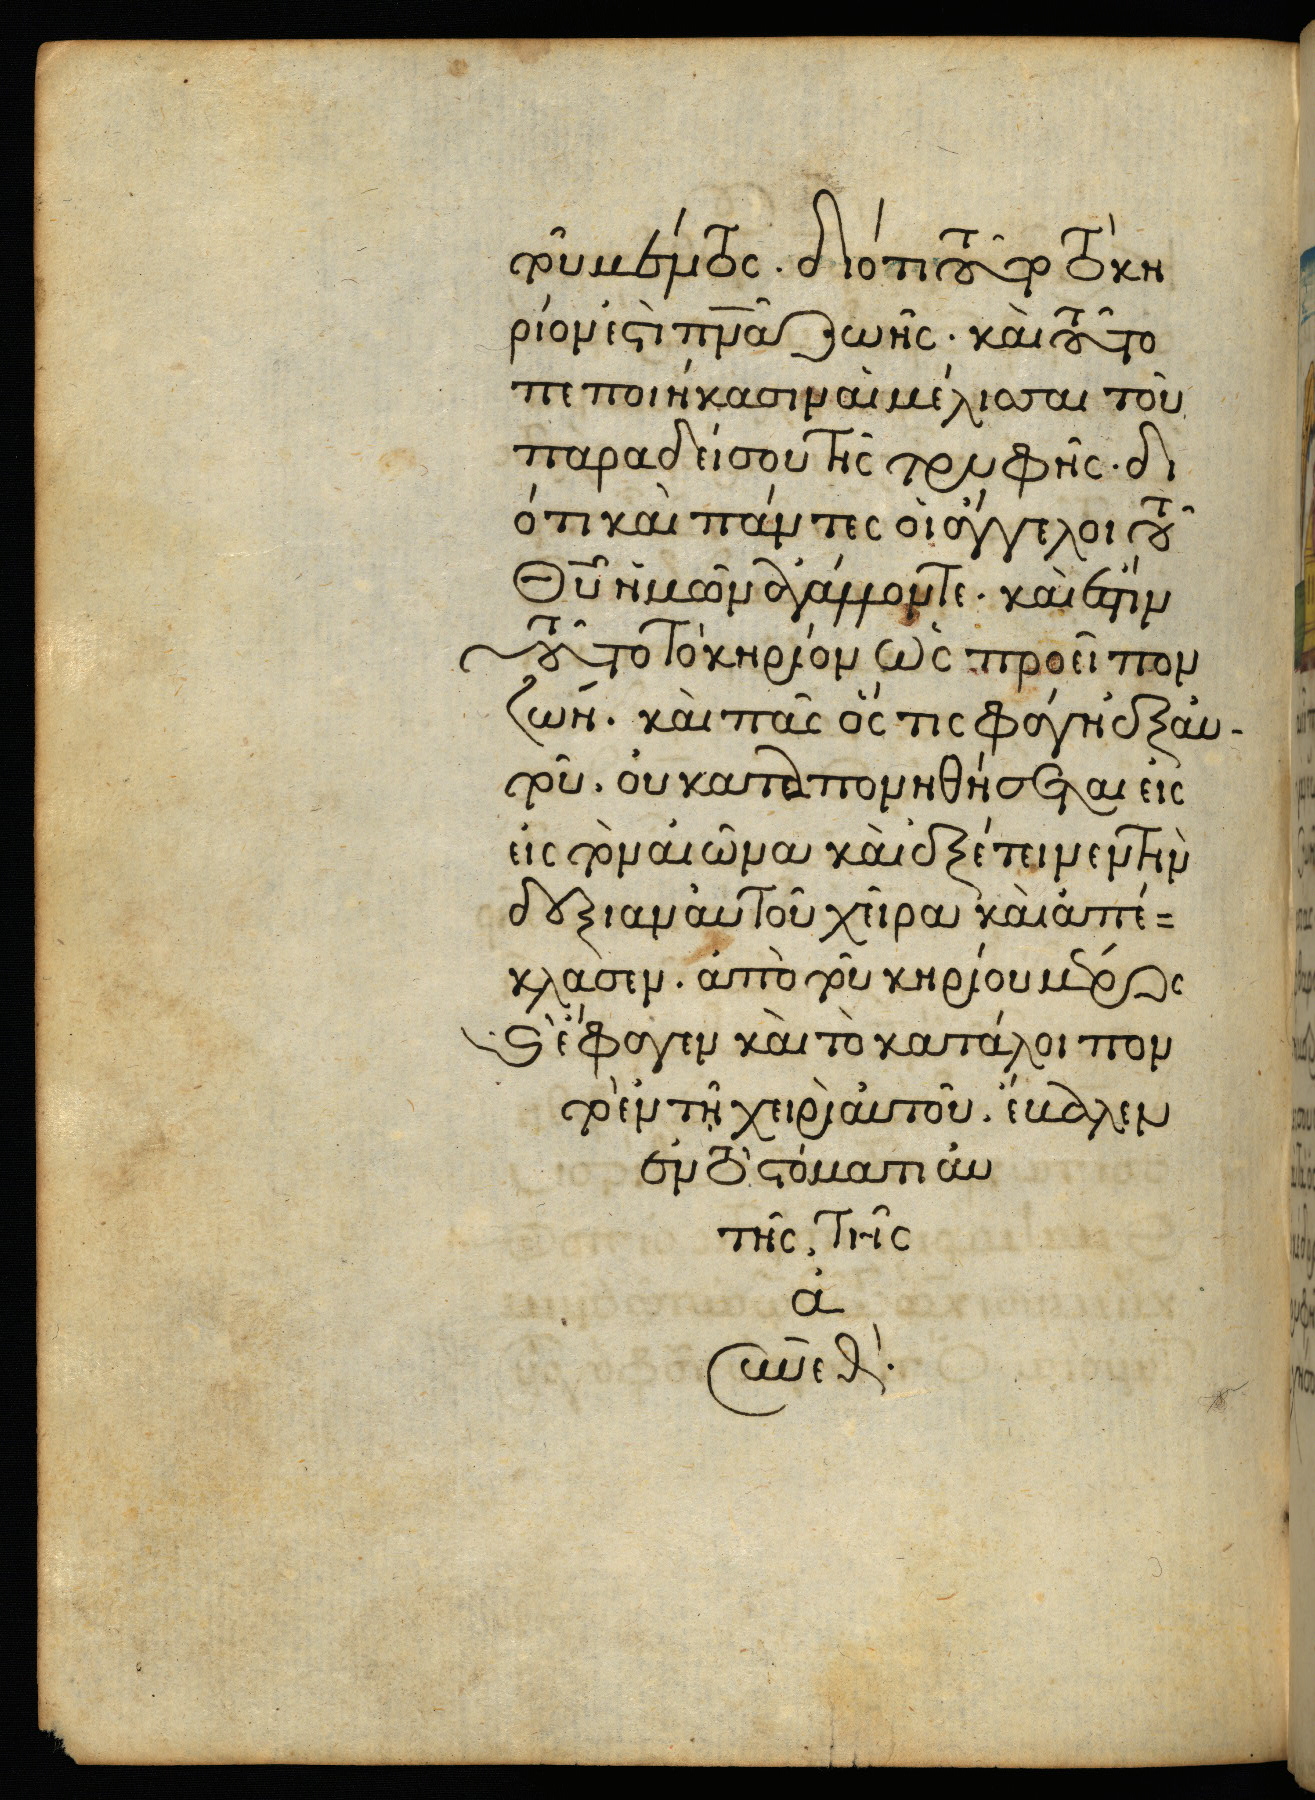 τοῦ μένους. διότι τοῦτο τὸ κη
ρίον ἐστὶ πνᾶ ζωῆς. καὶ τοῦτο
πεποιήκασιν αἱ μέλισσαι τοῦ
παραδείσου τῆς τρυφῆς. δι
ότι καὶ πάντες οἱ ἄγγελοι τοῦ
Θῦ ἡμῶν ἐσθίουσιν. καὶ ἔστιν
τοῦτο τὸ κηρίον ὡς προεῖπον
ζωή. καὶ πᾶς ὅς τις φάγη ἐξ αυ-
τοῦ. οὐκ ἀποθανεῖται εἰς
εἰς τὸν αἰῶνα καὶ ἐξέτεινεν τὴν
δεξιαν αὐτοῦ χεῖρα καὶ ἀπέ=
κλασεν. ἀπὸ τοῦ κηρίου μέρος
καὶ ἔφαγεν καὶ τὸ κατάλοιπον
τὸ ἐν τῆ χειρὶ αὐτοῦ. ἔβαλεν
ἐν τῶ στόματι αυ
τῆς. τῆς
ἀ
σενέθ.